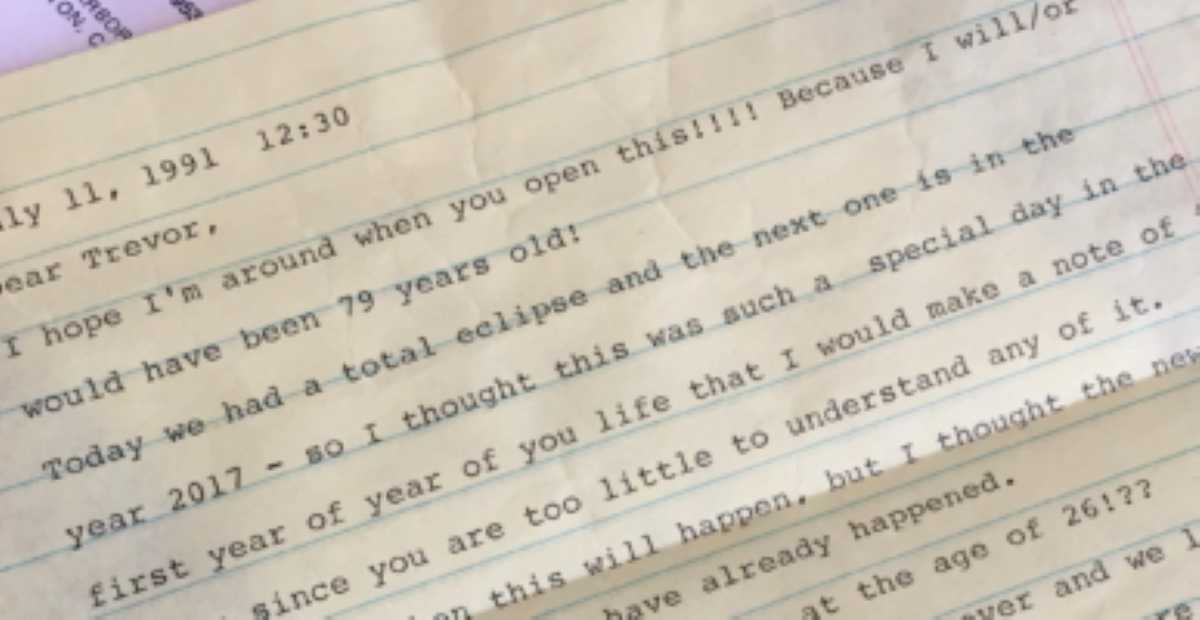 ly 11, 1991  12:30
ear Trevor,
I hope I'm around when you open this!!!! Because I will/or
would have been 79 years old!
Today we had a total eclipse and the next one is in the
year 2017 - so I thought this was such a  special day in the
first year of year of you life that I would make a note of
since you are too little to understand any of it.
en this will happen, but I thought the new
have already happened.
at the age of 26!??
ver and we l
re